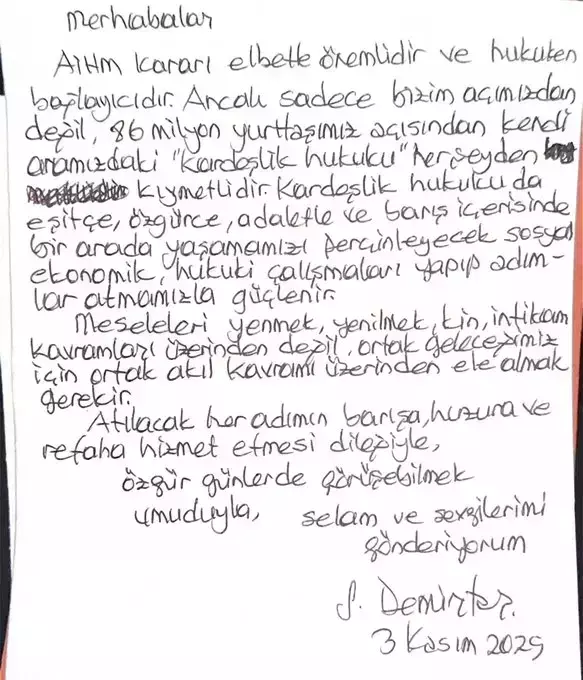 Merhabalar
AİHM kararı elbette önemlidir ve hukuken
bağlayıcıdır. Ancak sadece bizim açımızdan
değil, 86 milyon yurttaşımız açısından kendi
aramızdaki "kardeşlik hukuku" herşeyden
kıymetlidir. Kardeşlik hukuku da
eşitçe, özgürce, adaletle ve barış içerisinde
bir arada yaşamamızı perçinleyecek sosyal
ekonomik, hukuki çalışmaları yapıp adım-
lar atmamızla güçlenir.
Meseleleri yenmek, yenilmek, kin, intikam
kavramları üzerinden değil, ortak geleceğimiz
için ortak akıl kavramı üzerinden ele almak
gerekir.
Atılacak her adımın barışa, huzura ve
refaha hizmet etmesi dileğiyle,
özgür günlerde görüşebilmek
umuduyla, selam ve sevgilerimi
gönderiyorum
S. Demirtaş.
3 Kasım 2025